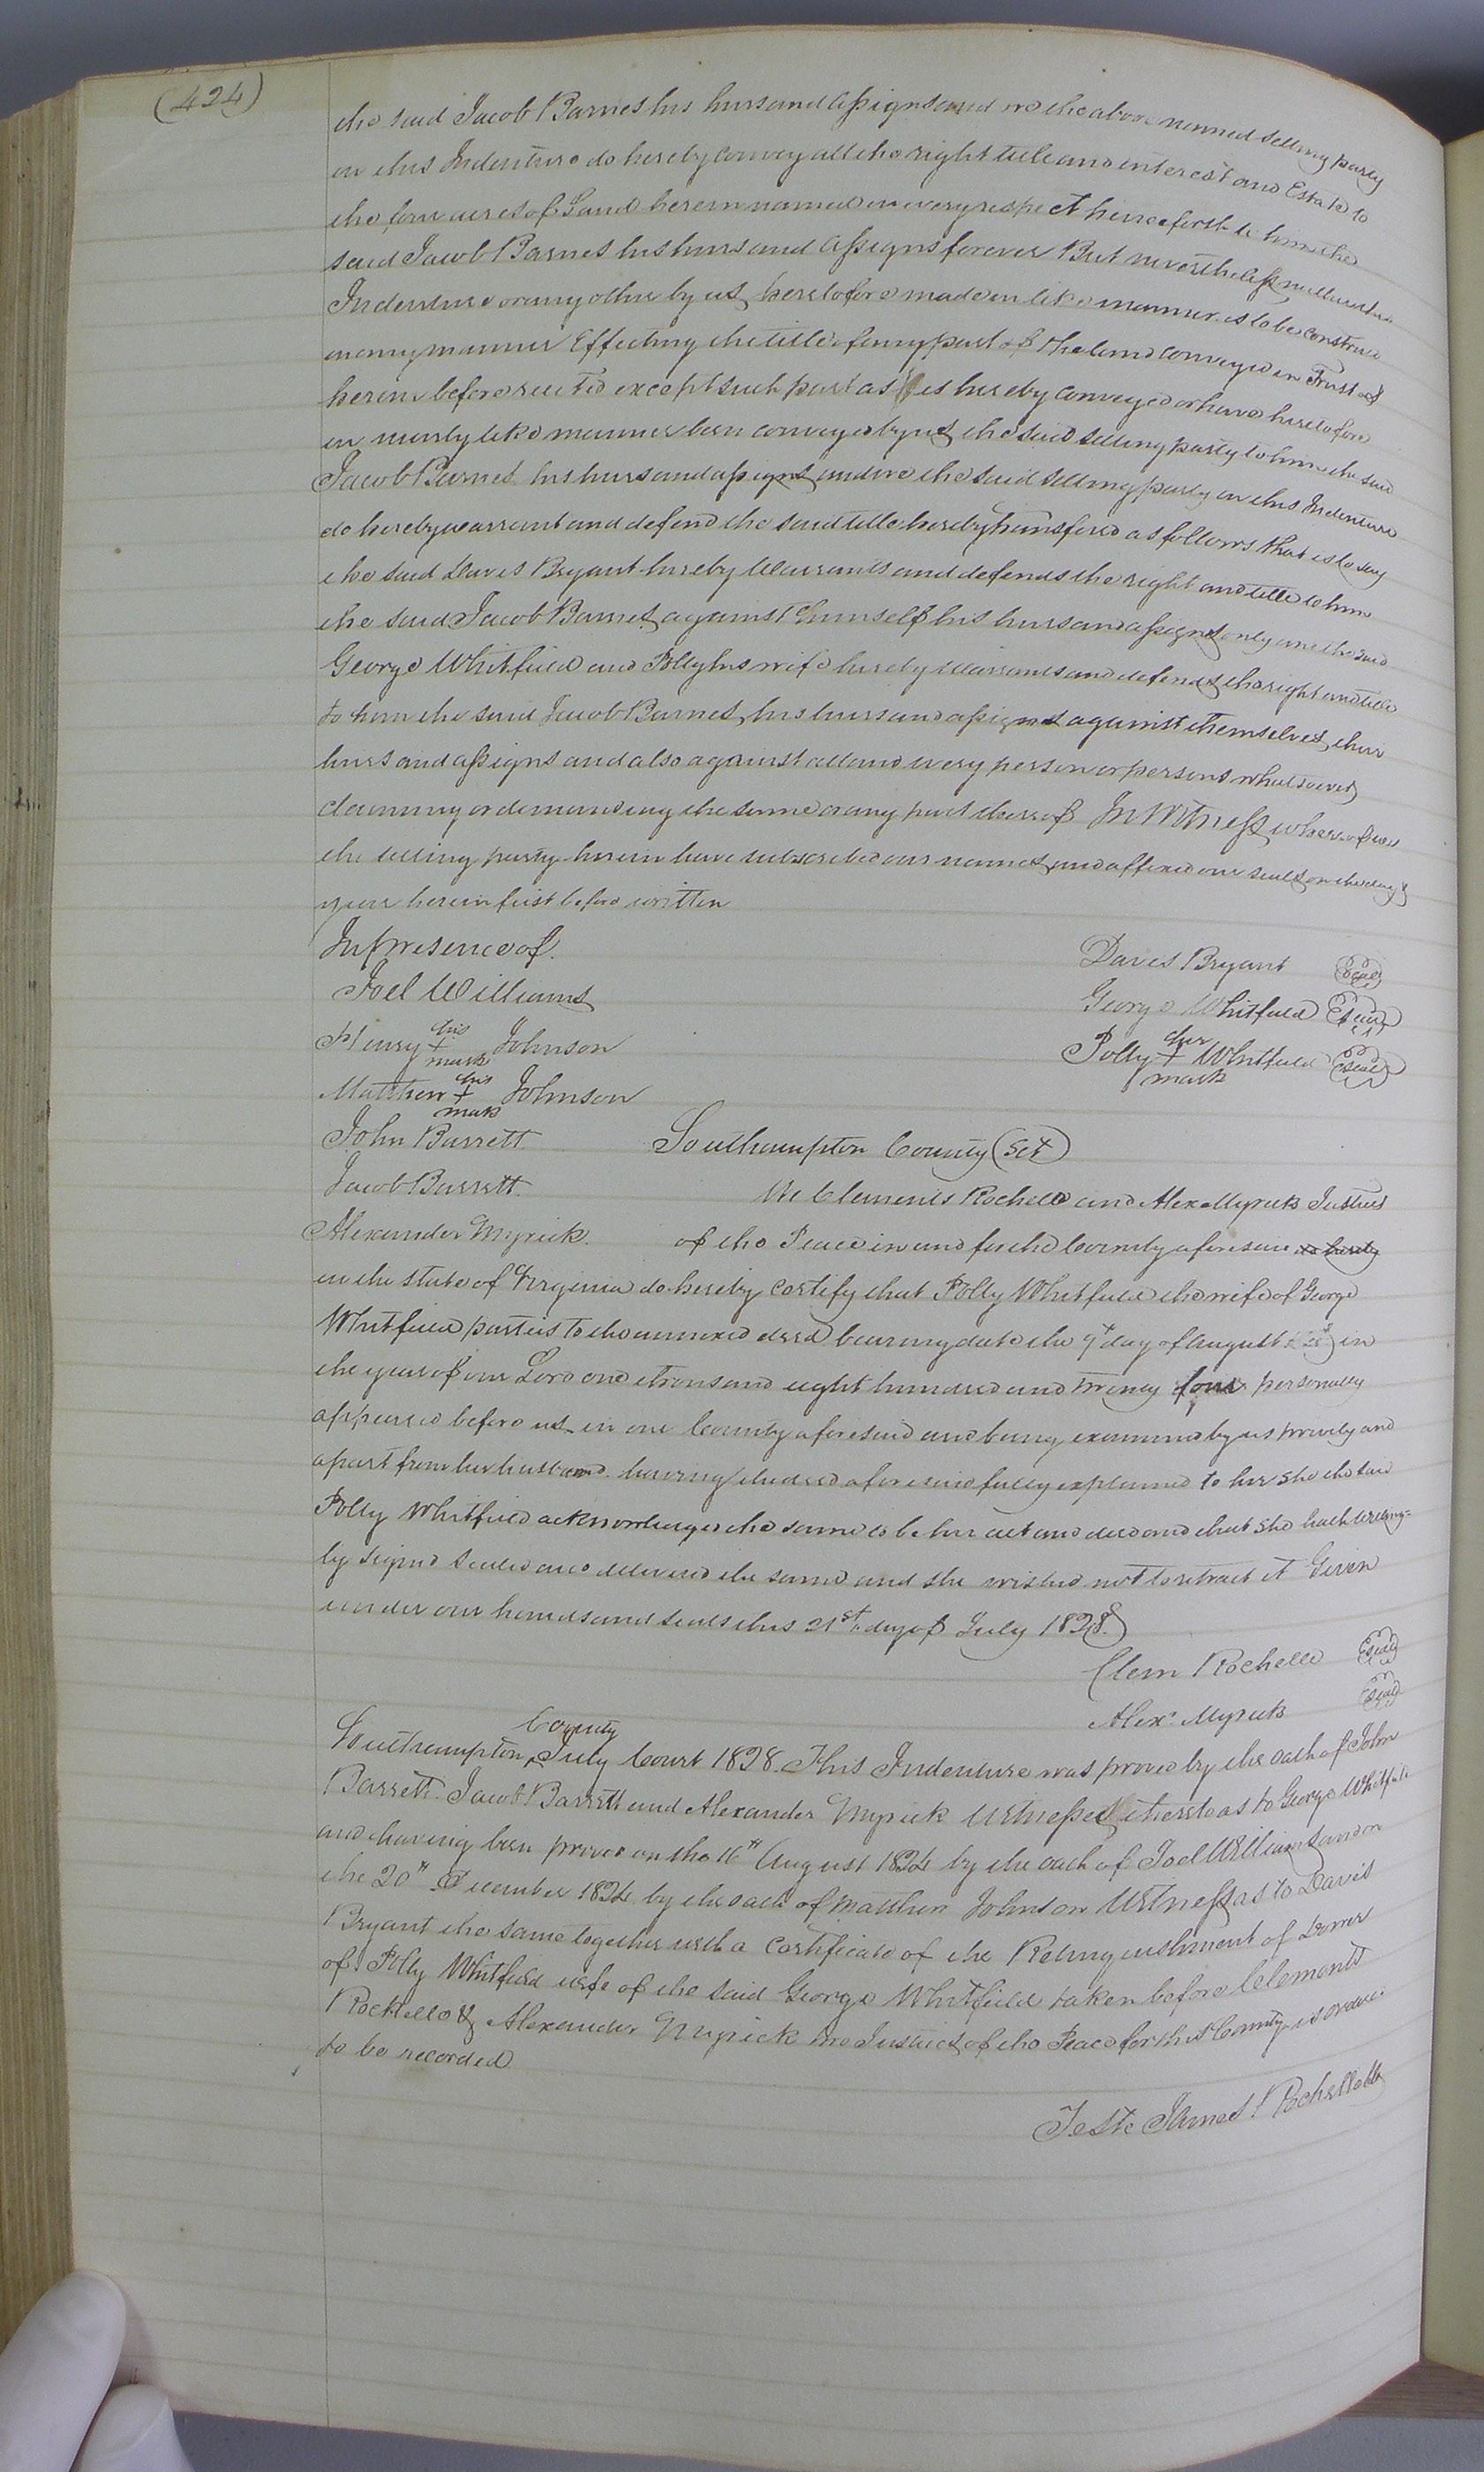 (424)
the said Jacob Barnes his heirs and assigns and we the above named selling party
in this Indenture do hereby convey all the right title and interest and Estate to
the four acres of Land herein named in every respect henceforth to him the
said Jacob Barnes his heirs and assigns forever But nevertheless neither this
Indenture or any other by us heretofore made in like manner is to be construed
in any manner Effecting the title of any part of the land conveyed in Trust as
herein before recited except such part as is hereby conveyed or have heretofore
in nearly like manner been conveyed by us the said selling party to him the said
Jacob Barnes his heirs and assigns and we the said selling party in this Indenture
do hereby warrant and defend the said title hereby transfered as follows that is to say
the said Davis Bryant hereby Warrants and defends the right and title to him
the said Jacob Barnes against himself his heirs and assigns only and the said
George Whitfield and Polly his wife hereby Warrants and defends the right and title
to him the said Jacob Barnes his heirs and assigns against themselves, their
heirs and assigns and also against all and every person or persons whatsoever
claiming or demanding the same or any part thereof In Witness whereof we
the selling party herein have subscribed our names and affixed our seals on the day &
year herein first before written
In presence of
Joel Williams
Henry his + mark Johnson
Matthew his + mark Johnson
John Barrett
Jacob Barrett
Alexander Myrick
Davis Bryant Seal
George Whitfield Seal
Polly her + mark Whitfield Seal
Southampton County (Sct)
We Clements Rochelle and Alex Myrick Justices
of the Peace in and for the County aforesaid do hereby
in the State of Virginia do hereby certify that Polly Whitfield the wife of George
Whitfield parties to the annexed deed bearing date the 9th day of August in
the year of our Lord one thousand eight hundred and twenty four personally
appeared before us in our County aforesaid and being examined by us privily and
apart from her husband having the deed aforesaid fully explained to her she the said
Polly Whitfield acknowledged the same to be her act and deed and that she hath willing-
ly signed sealed and delivered the same and she wished not to retract it Given
under our hands and seals this 21st day of July 1828
Clem Rochelle Seal
Alexr. Myrick Seal
Southampton County July Court 1828. This Indenture was proved by the oath of John
Barrett Jacob Barrett and Alexander Myrick Witnesses thereto as to George Whitfield
and having been proved on the 16th August 1824 by the oath of Joel Williams and on
the 20th December 1824 by the oath of Matthew Johnson Witness as to Davis
Bryant the same together with a Certificate of the Relinquishment of Dower
of Polly Whitfield wife of the said George Whitfield taken before Clements
Rochelle & Alexander Myrick two Justices of the Peace for this County is ordered
to be recorded
Teste James Rochelle Clk